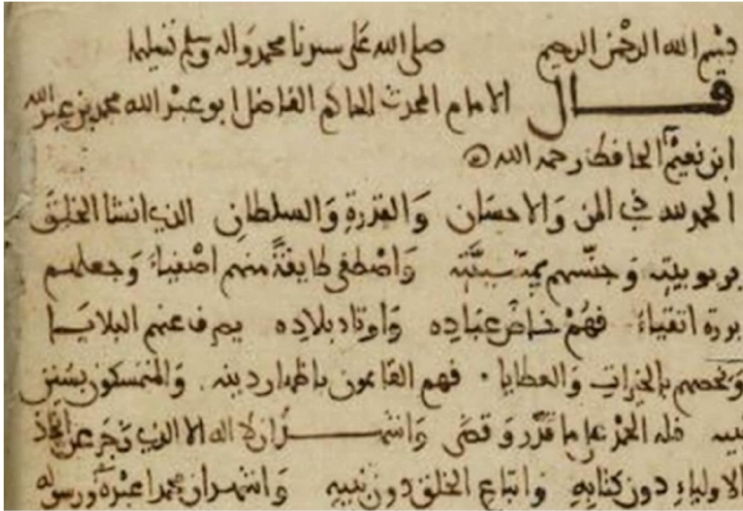 بسم الله الرحمن الرحيم صلى الله على سيدنا محمد واله وسلم تسليما
قال الامام المحدث الحاكم الفاضل ابو عبد الله محمد بن عبد الله
ابن نعيم الحافظ رحمه الله
الحمد لله ذي المن والاحسان والقدرة والسلطان الذي انشا الخلق
بربوبيته وجنسهم بمشيئته واصطفى طايفة منهم اصفياء وجعلهم
بررة اتقياء فهم خاص عباده واوتاد بلاده يصرف عنهم البلايا
ويخصهم بالخيرات والعطايا فهم القايمون باظهار دينه والمتمسكون بسنن
نبيه فله الحمد على ما قدر وقضى واشهد ان لا اله الا الله الذي زجر عن اتخاذ
الاولياء دون كتابه واتباع الخلق دون نبيه واشهد ان محمدا عبده ورسوله